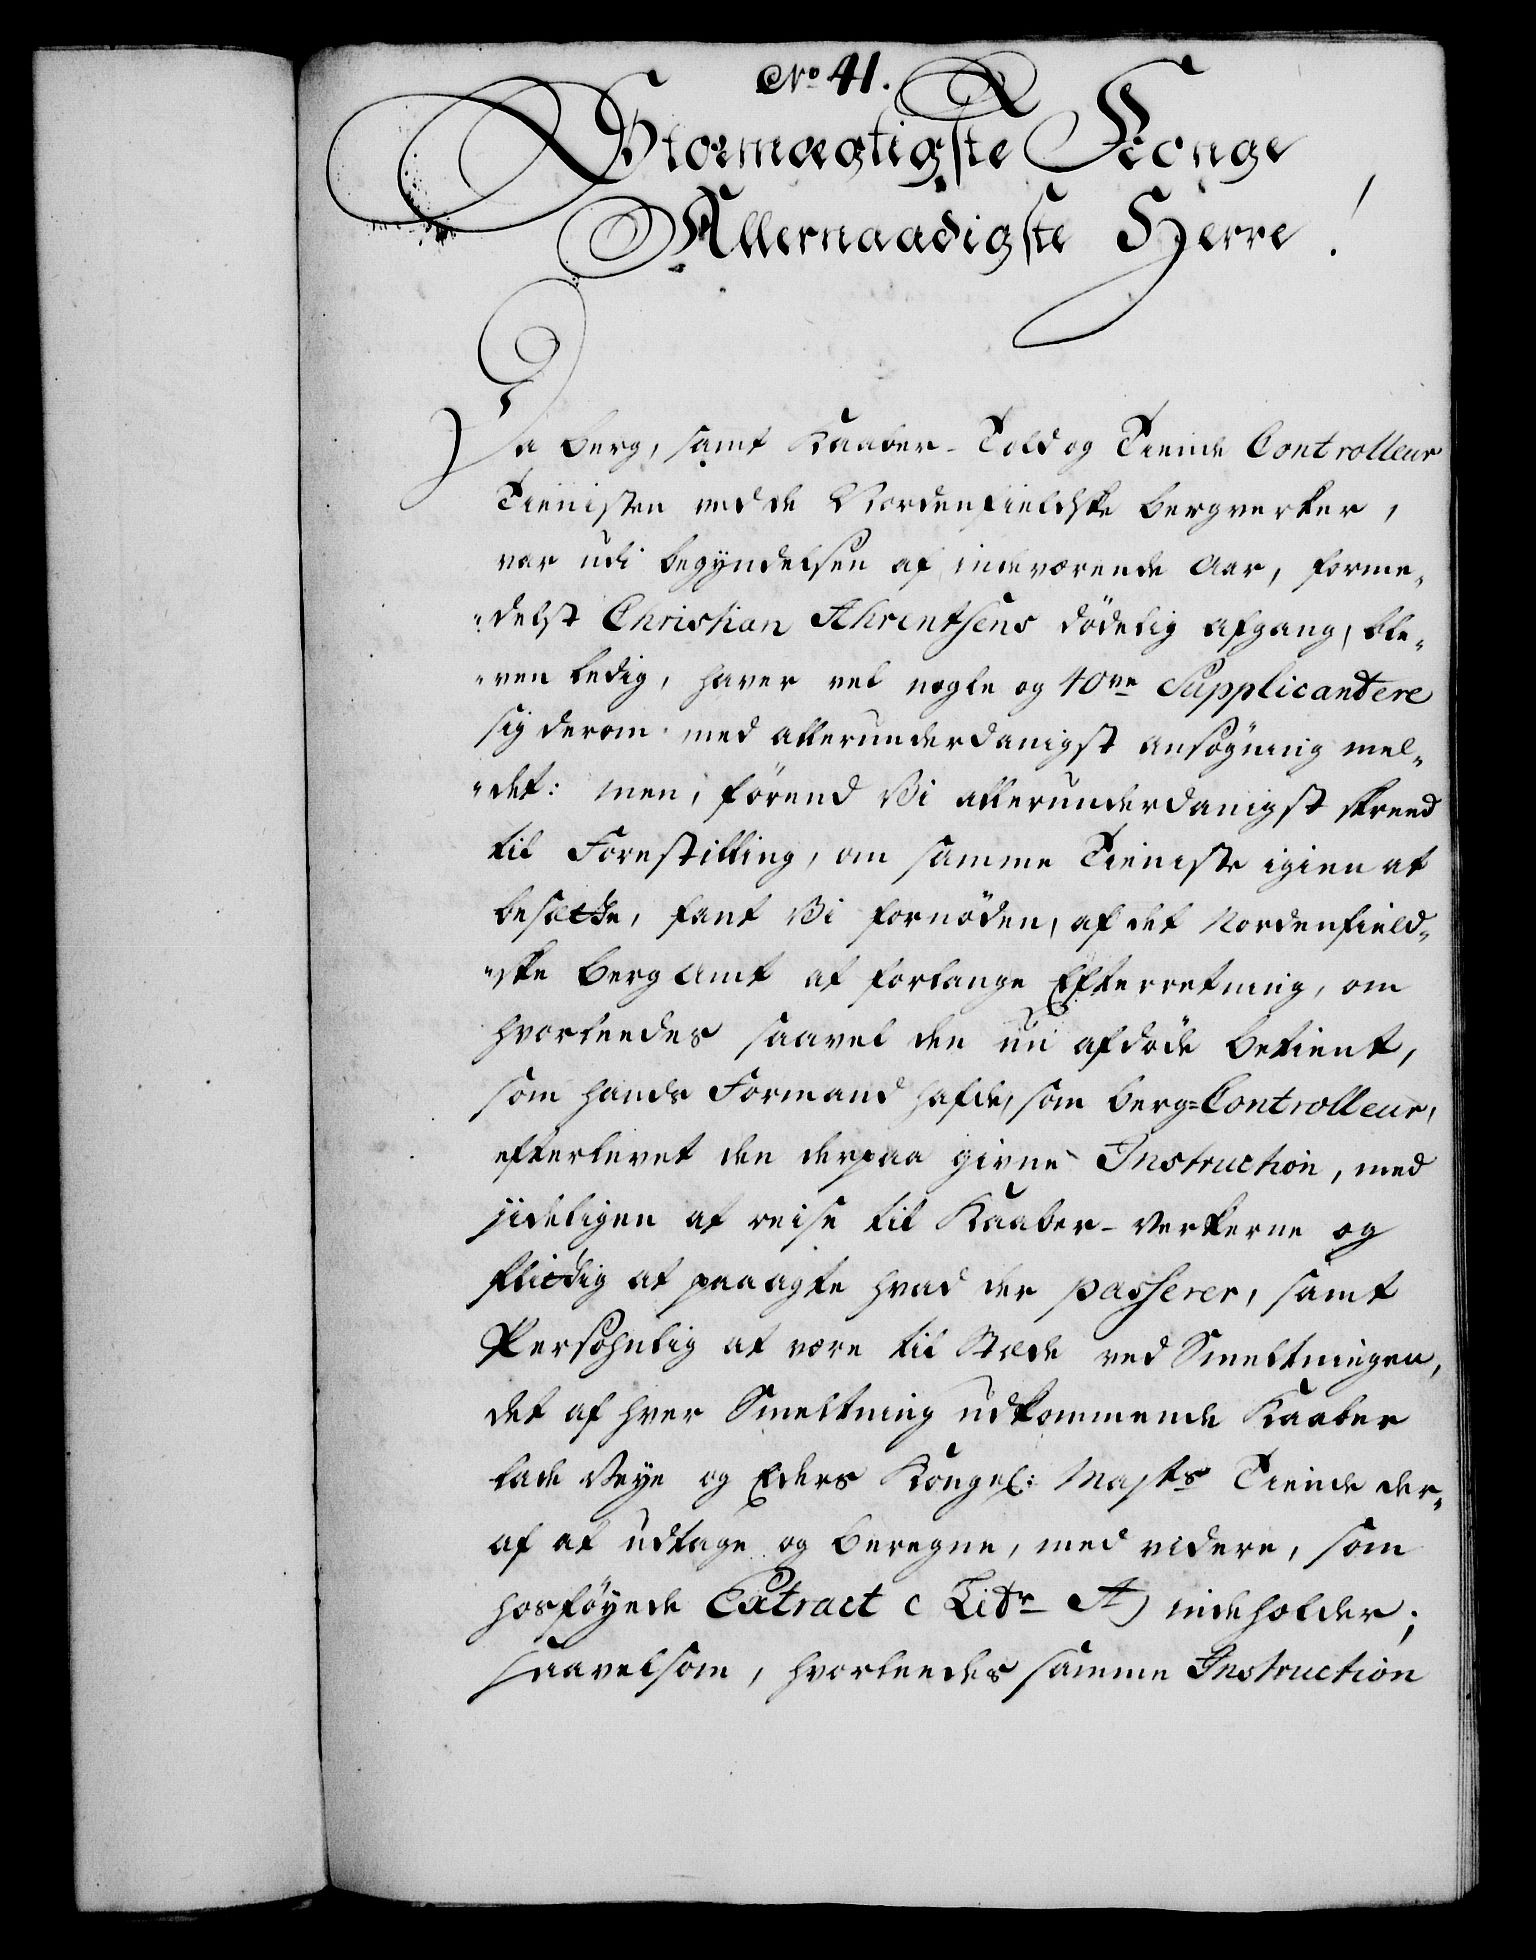 No 41.
Stormægtigste Konge
Allernaadigste Herre!
Da Berg, samt Kaaber-Told og Tiende Controlleur
Tienisten ved de Nordenfieldske Bergverker,
var udi begyndelsen af indeværende Aar, forme„
„delst Christian Ahrentsens dödelig afgang, ble„
„ven ledig, haver vel nogle og 40ve Supplicantere
sig derom med allerunderdanigst ansøgning mel„
„det: men, förend Vi allerunderdanigst skreed
til Forestilling, om samme Tieniste igien at
besætte, fant Vi fornöden, af det Nordenfield„
„ske Berg Amt at forlange Efterretning, om
hvorleedes saavel den nu afdöde betient,
som hands Formand hafde, som Berg-Controlleur,
efterlevet den derpaa givne Instruction, med
jideligen at reise til Kaaber-Verkerne og
flittig at paaagte hvad der passerer, samt
Persohnlig at være til Stæde ved Smeltningen,
det af hver Smeltning udkommende Kaaber
lade Veye og Eders Kongel: Majts Tiende der„
af at udtage og beregne, med videre, som
hosföyede Extract (Litr A) indeholder;
saavelsom, hvorleedes samme Instruction